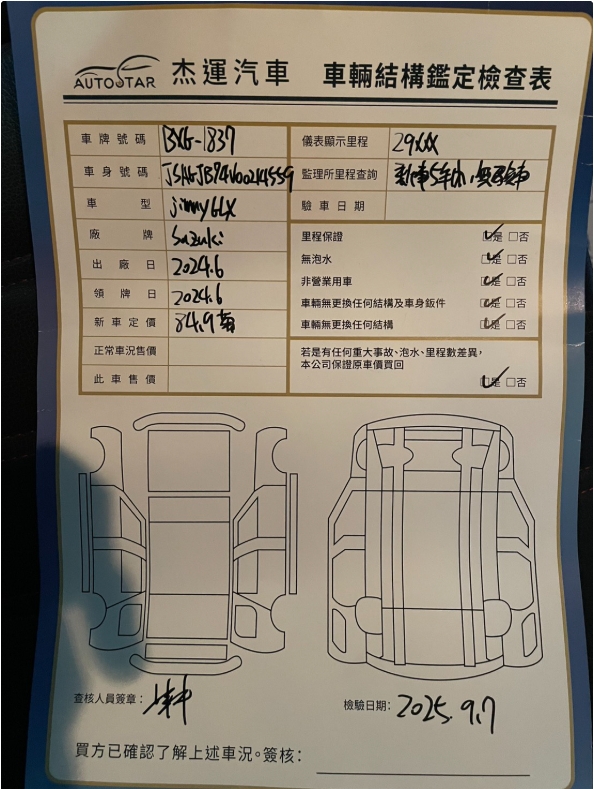 AUTOSTAR 杰運汽車 車輛結構鑑定檢查表
車牌號碼 BXG-1837
車身號碼
車型 jimny GLX
廠牌 Suzuki
出廠日 2024.6
領牌日 2024.6
新車定價 84.9萬
正常車況售價
此車售價
儀表顯示里程 29xxx
監理所里程查詢 新車5年內,無需驗車
驗車日期
里程保證 是 否
無泡水 是 否
非營業用車 是 否
車輛無更換任何結構及車身鈑件 是 否
車輛無更換任何結構 是 否
若是有任何重大事故、泡水、里程數差異,
本公司保證原車價買回
是 否
查核人員簽章:
檢驗日期: 2025.9.7
買方已確認了解上述車況。簽核: